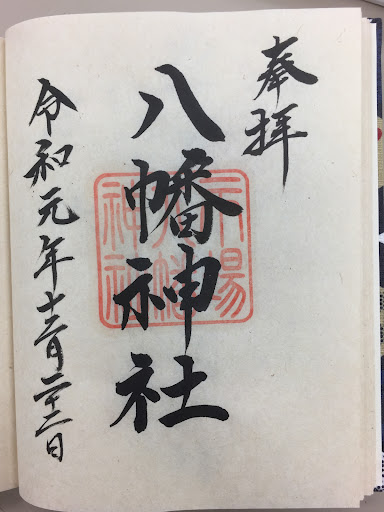 奉拝
八幡神社
令和元年十二月二十二日
八幡
神社